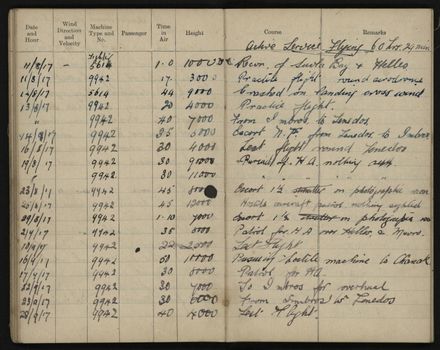 Date and Hour Wind Direction and Velocity Machine Type and No. Passenger Time in Air Height Course Remarks
Active Service Flying 60 hrs. 24 min
11/8/17 - 5614 1.0 10000 Recon. of Suvla Bay & Helles
11/8/17 9942 17. 3000 Practice flight round aerodrome
12/8/17 5614 44 9000 Crashed on landing cross wind
13/8/17 9942 20 4000 Practice flight.
" 9942 40 7000 From Imbros to Tenedos.
14/8/17 9942 35 5000 Escort N.F. from Tenedos to Imbros
16/8/17 9942 30 4000 Test flight round Tenedos
19/8/17 9942 30 9000 Pursuit of H.A. nothing
" 9942 30 11000 " " " "
23/8/17 9942 45 8000 Escort 1½ on photographic recon
9942 45 12000 aircraft patrol. nothing sighted
29/8/17 9942 1.10 7000 Escort 1½ on photographic
2/9/17 9942 35 6000 Patrol for H.A. over Helles &
9942 22 2000 Test Flight
16/9/17 9942 50 10000 Pursuing hostile machine to Chanak
17/9/17 9942 30 8000 Patrol for H.A.
22/9/17 9942 30 7000 To Imbros for overhaul
23/9/17 9942 30 6000 From Imbros to Tenedos
28/9/17 9942 40 14000 Test Flight.